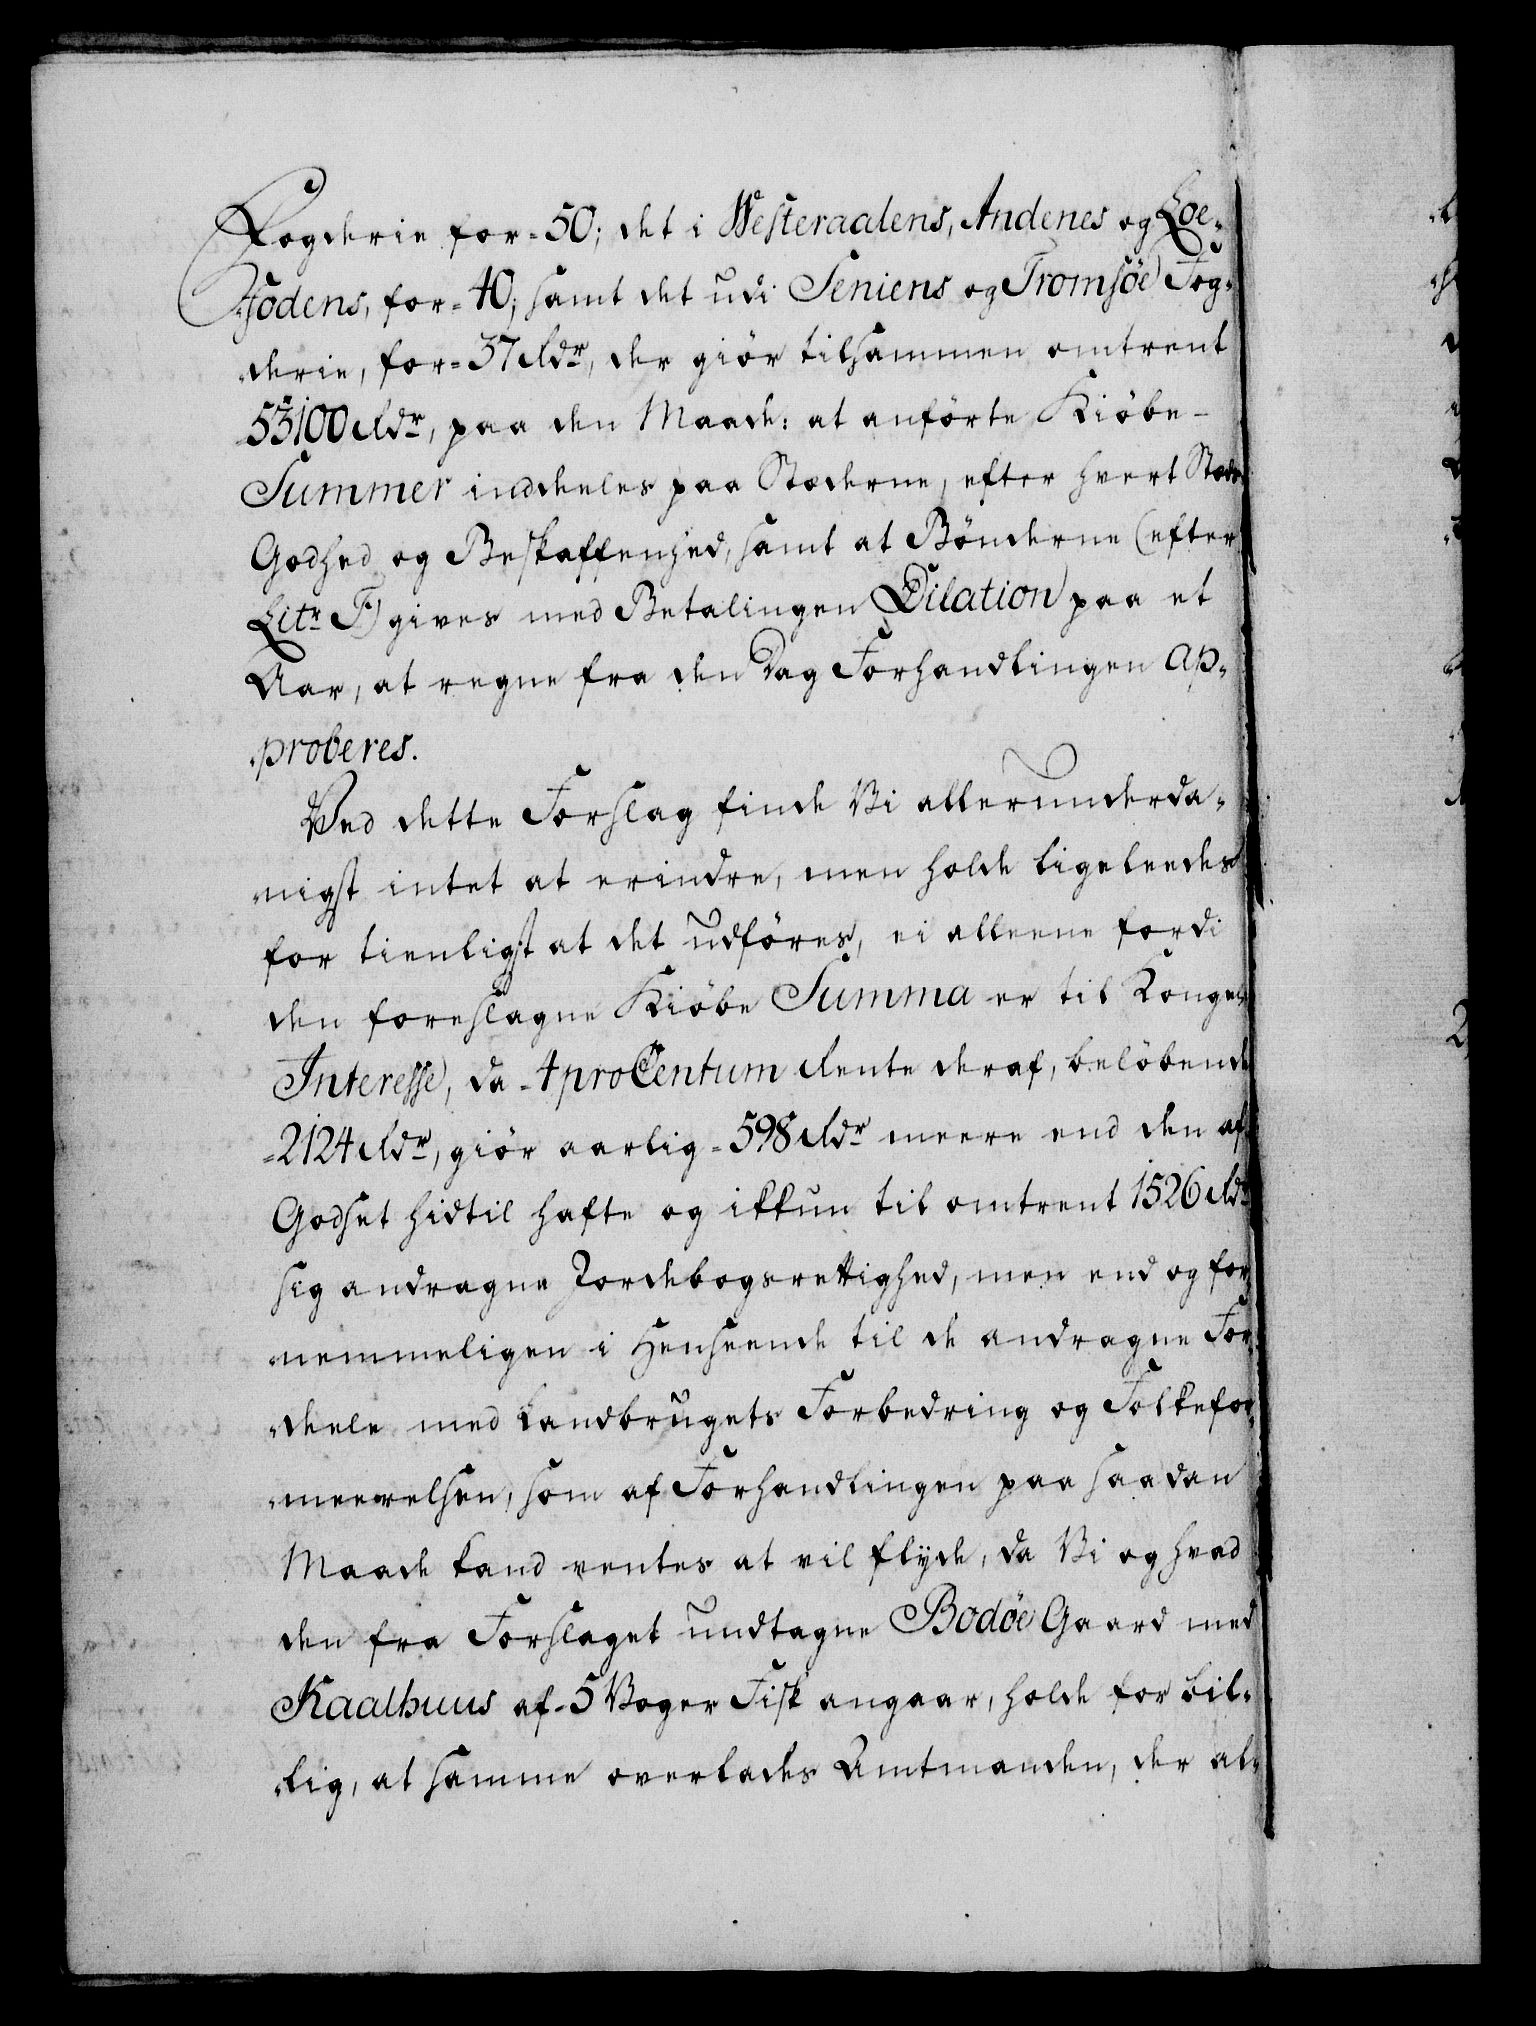 Fogderie for=50; det i Westeraalens, Andenes og Loe-
födens, for=40; samt det udi Seniens og Tromsöe Fog-
derie, for=37 Rdr, der giör tilsammen omtrent
53100 Rdr, paa den Maade: at anförte Kiöbe-
Summer inddeeles paa Stæderne, efter hvert Stæds
Godhed og Beskaffenhed, samt at Bönderne (efter
Litr F) gives med Betalingen Dilation paa et
Aar, at regne fra den Dag Forhandlingen ap-
proberes.
Ved dette Forslag finde Vi allerunderda-
nigst intet at erindre, men holde ligeleedes
for tienligst at det udföres, ei alleene fordi
den foreslagne Kiöbe Summa er til Kongens
Interesse, da=4 pro Centum Rente deraf, belöbende
=2124 Rdr, giör aarlig=598 Rdr meere end den af
Godset hidtil hafte og ikkun til omtrent 1526 Rdr
sig andragne Jordebogsrettighed, men end og for-
nemmeligen i Henseende til de andragne For-
deele med Landbrugets Forbedring og Folkefor-
meerelsen, som af Forhandlingen paa saadan
Maade kand ventes at vil flyde, da Vi og hvad
den fra Forslaget undtagne Bodöe Gaard med
Kaalhuus af=5 Voger Fisk angaar, holde for bil-
lig, at samme overlades Amtmanden, der al-